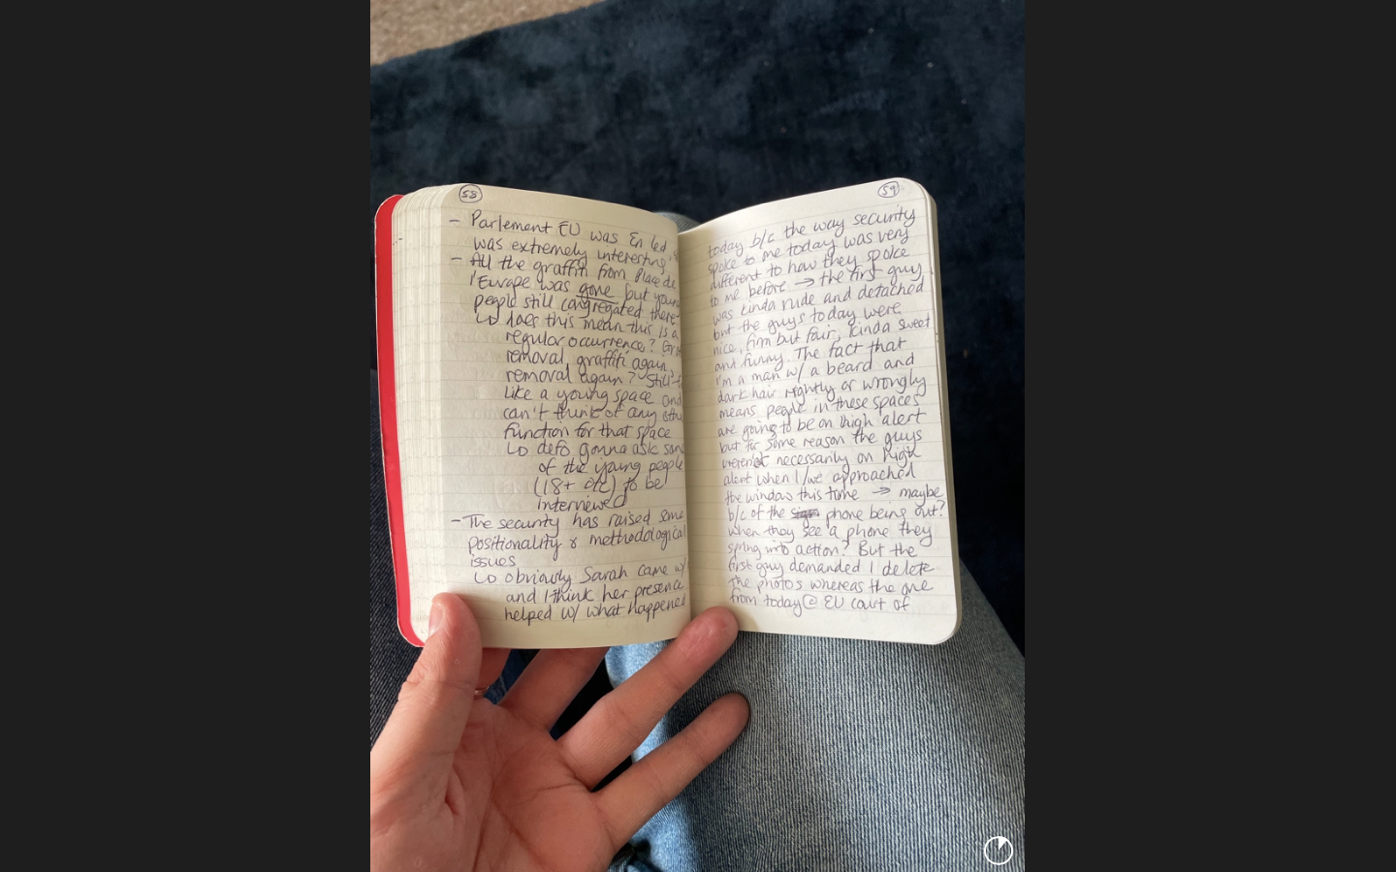 58
- Parlement EU was En led
was extremely interesting
- All the graffiti from Place de
l'Europe was gone but young
people still congregated there
↳ does this mean this is a
regular occurrence?
removal, graffiti again,
removal again? Still
like a young space and
can't think of any othe
function for that space
↳ defo gonna ask some
of the young people
(18+ etc) to be
interviewed
- The security has raised some
positionality & methodological
issues
↳ obviously Sarah came w/
and I think her presence
helped w/ what happened
59
today b/c the way security
spoke to me today was very
different to how they spoke
to me before → the first guy
was kinda rude and detached
but the guys today were
nice, firm but fair, kinda sweet
and funny. The fact that
I'm a man w/ a beard and
dark hair rightly or wrongly
means people in these spaces
are going to be on high alert
but for some reason the guys
weren't necessarily on high
alert when I/we approached
the window this time → maybe
b/c of the phone being out?
When they see a phone they
spring into action? But the
first guy demanded I delete
the photos whereas the one
from today @ EU court of